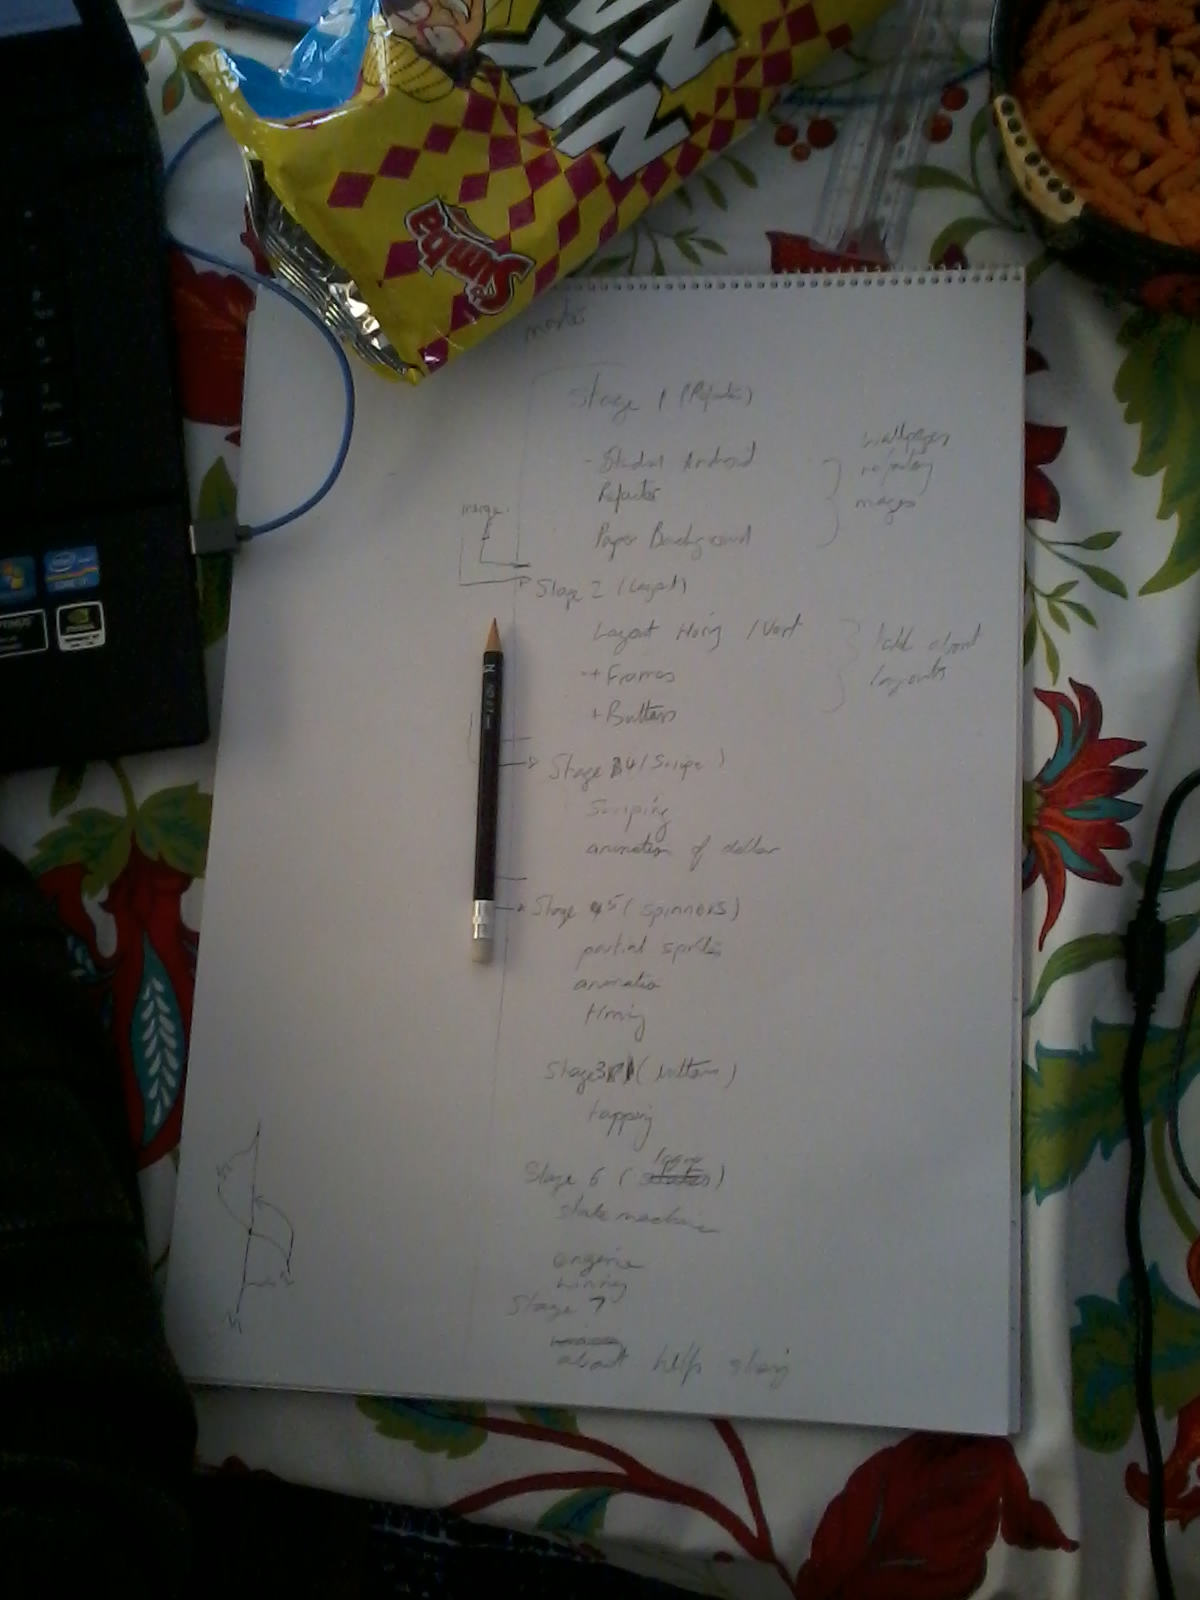 NIK
NAK
Simba
master
Stage 1 (Refactor)
- Student Android
Refactor
Paper Background
wallpaper
refactoring
images
merge
Stage 2 (Layout)
Layout Horiz / Vert
+ Frames
+ Buttons
talk about
layouts
Stage 4 (Swipe)
Swiping
animation of dollar
Stage 5 (spinners)
partial sprites
animation
timing
Stage 3 (buttons)
tapping
Stage 6 (logic)
state machine
engine
winning
Stage 7
about help
intel
CORE i7